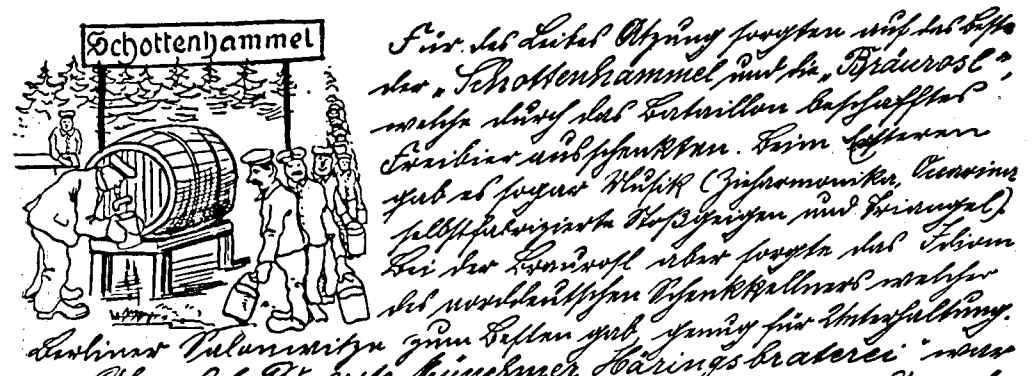 Schottenhammel
Für des Leibes Atzung sorgten auf das beste
der „Schottenhammel und die „Bräurosl",
welche durch das Bataillon beschafftes
Freibier ausschenkten. Beim letzteren
gab es sogar Musik (Ziharmonika, Ocarina
selbstfabrizierte Stoßgeigen und Triangel).
Bei der Braurosl aber sorgte das Idiom
des norddeutschen Schenkkellners welcher
Berliner Salonwitze zum Besten gab, genug für Unterhaltung.
erste Münchner Häringsbraterei" war